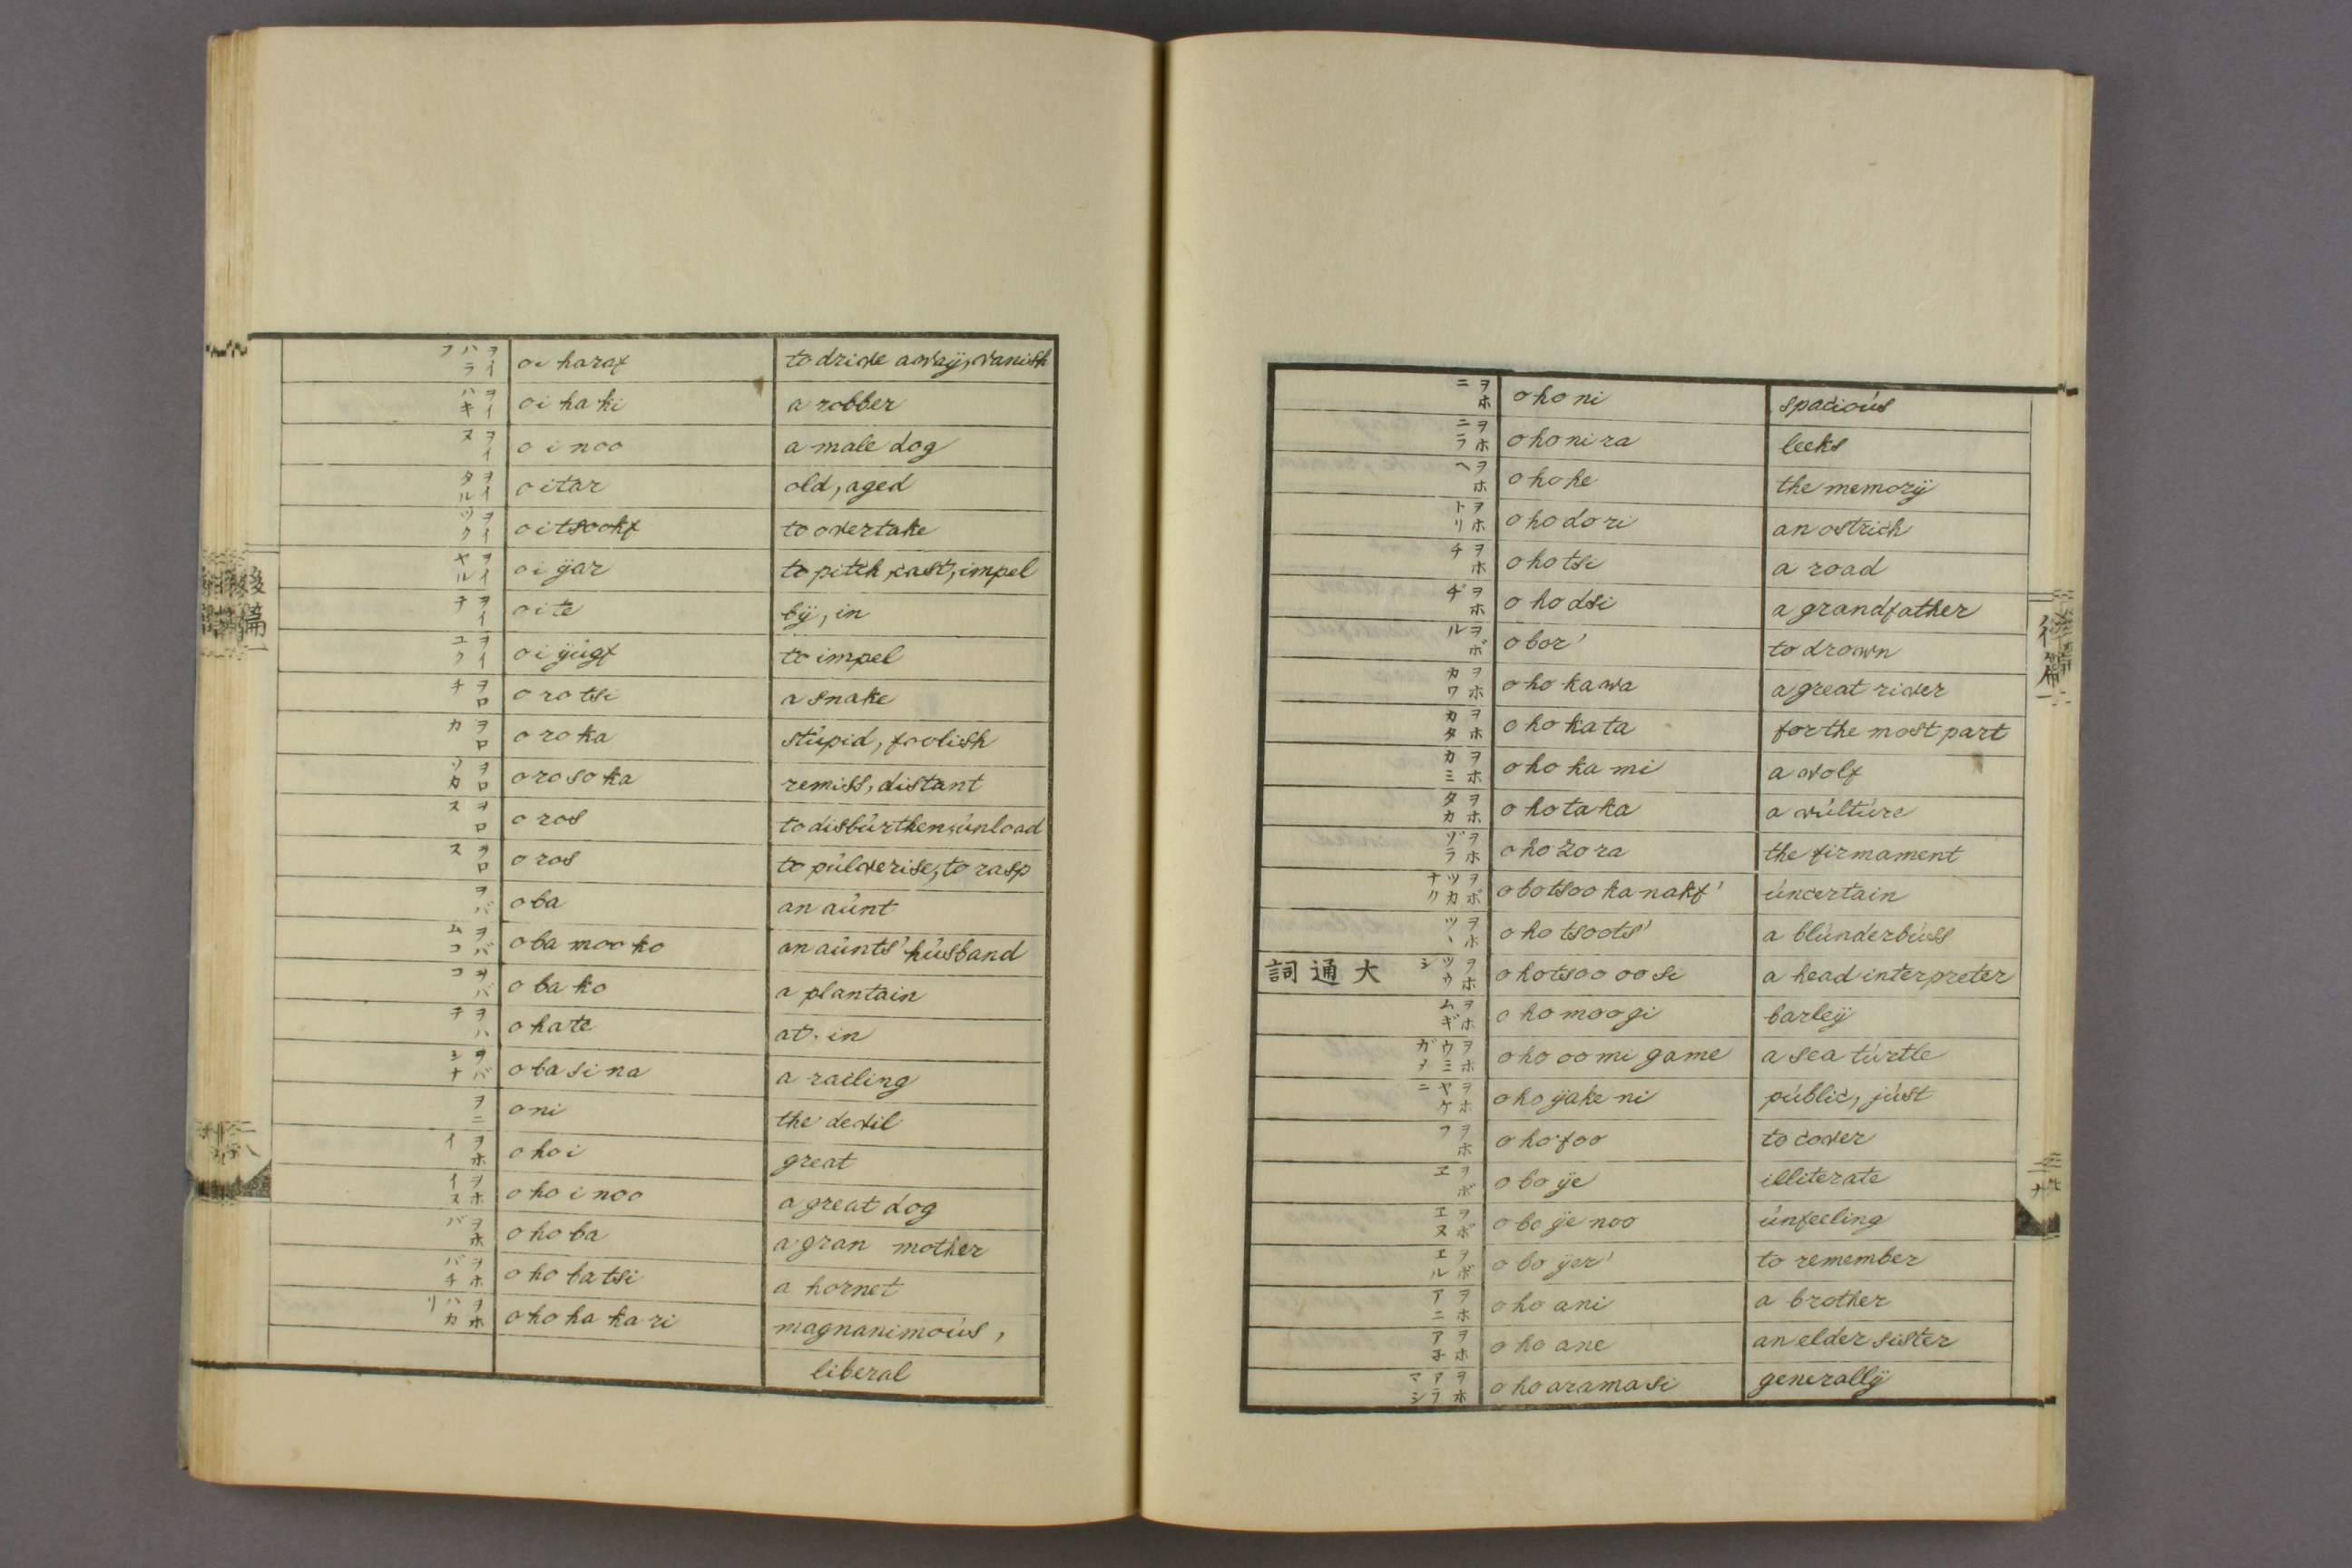 ヲイハラフ oi haraf to drive awaÿ, vanish
ヲイハキ oi ha ki a robber
ヲイヌ o i noo a male dog
ヲイタル oitar old, aged
ヲイツク oitsookf to overtake
ヲイヤル oi ÿar to pitch, cast, impel
ヲイテ oi te bÿ, in
ヲイユク oi ÿúgf to impel
ヲロチ o ro tsi a snake
ヲロカ o ro ka stúpid, foolish
ヲロソカ oro so ka remiss, distant
ヲロス o ros to disbúrthen, únload
ヲロス o ros to púlverise, to rasp
ヲバ o ba an aúnt
ヲバムコ oba moo ko an aúnts' húsband
ヲバコ o ba ko a plantain
ヲハテ o hate at, in
ヲバシナ o ba si na a railing
ヲニ o ni the devil
ヲホイ o ho i great
ヲホイヌ o ho i noo a great dog
ヲホバ o ho ba a gran mother
ヲホバチ o ho ba tsi a hornet
ヲホハカリ o ho ha ka ri magnanimoús,
liberal
後篇一
八
ヲホニ o ho ni spacioús
ヲホニラ o ho ni ra leeks
ヲホヘ o ho he the memorÿ
ヲホトリ o ho do ri an ostrich
ヲホチ o ho tsi a road
ヲホヂ o ho dsi a grandfather
ヲボル o bor' to drown
ヲホカワ o ho ka wa a great river
ヲホカタ o ho ka ta for the most part
ヲホカミ o ho ka mi a wolf
ヲホタカ o ho ta ka a vúltúre
ヲホゾラ o ho zo ra the firmament
ヲボツカナク o botsoo ka nakf' úncertain
ヲホツヽ o ho tsoots' a blúnderbúss
大通詞 ヲホツウシ o hotsoo oo si a head interpreter
ヲホムギ o ho moo gi barleÿ
ヲホウミガメ o ho oo mi game a sea túrtle
ヲホヤケニ o ho ÿake ni públic, júst
ヲホフ o ho foo to cover
ヲボエ o bo ÿe illiterate
ヲボエヌ o bo ÿe noo únfeeling
ヲボエル o bo ÿer' to remember
ヲホアニ o ho ani a brother
ヲホア子 o ho ane an elder sister
ヲホアラマシ o ho aramasi generallÿ
後篇一